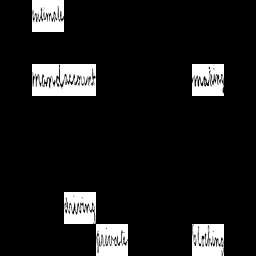 intimate
mand account making
driving
private clothing